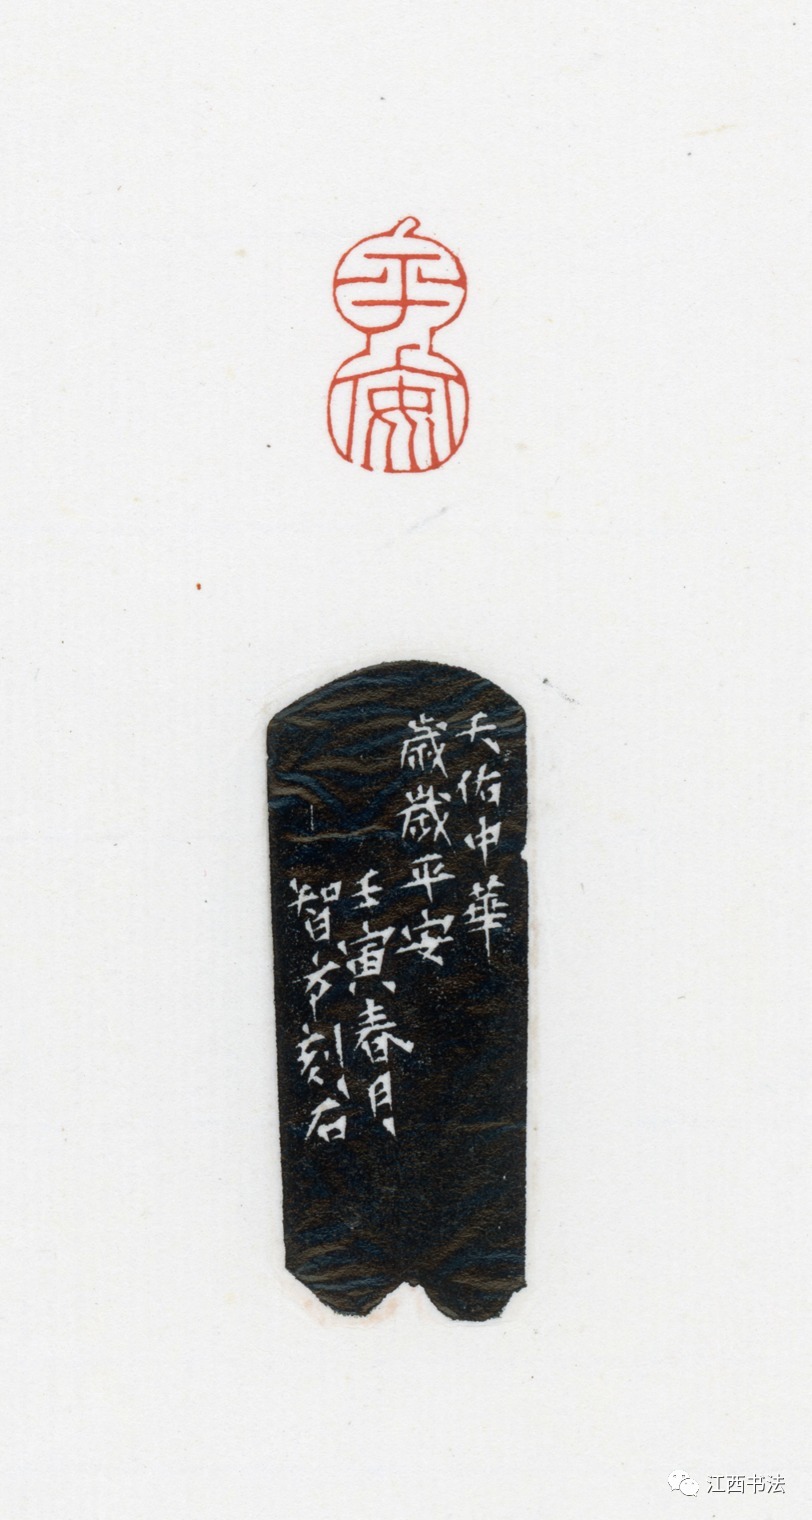 平安
天佑中華
歲歲平安
壬寅春月
智方刻石
江西书法